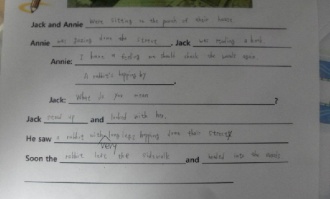 Jack and Annie were sitting on the porch of their house
Annie was gazing down the street. Jack was reading a book
Annie: I have a feeling we should the woods again.
A rabbit's hopping by
Jack: What do you mean ?
Jack stood up and looked with her.
He saw a rabbit with very long legs hopping down their street
Soon the rabbit left the sidewalk and headed into the woods